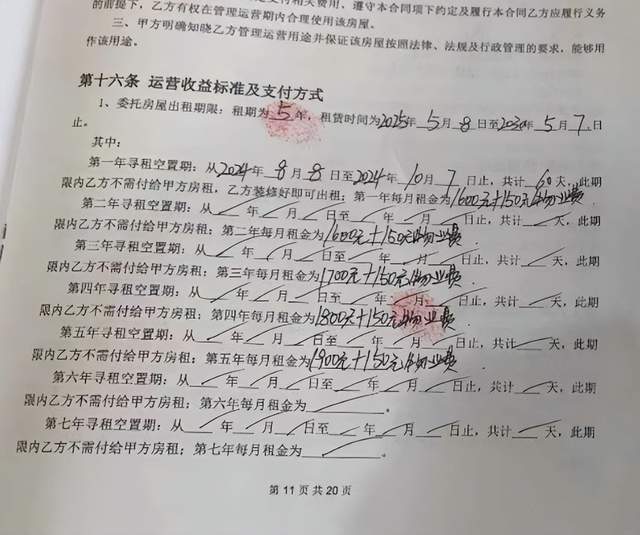 的前提下，乙方有权在管理运营期内合理使用该房屋。
三、甲方明确知晓乙方管理运营用途并保证该房屋按照法律、法规及行政管理的要求，能够用
作该用途。
第十六条 运营收益标准及支付方式
1、委托房屋出租期限：租期为 5 年，租赁时间为2025年 5 月 8 日至2030年 5 月 7 日
止。
其中：
第一年寻租空置期：从2024年 8 月 8 日至2024年 10 月 7 日止，共计 60 天，此期
限内乙方不需付给甲方房租，乙方装修好即可出租；第一年每月租金为1600元+150元物业费
第二年寻租空置期：从 年 月 日至 年 月 日止，共计 天，此期
限内乙方不需付给甲方房租；第二年每月租金为1600元+150元物业费.
第三年寻租空置期：从 年 月 日至 年 月 日止，共计 天，此期
限内乙方不需付给甲方房租；第三年每月租金为1700元+150元物业费.
第四年寻租空置期：从 年 月 日至 年 月 日止，共计 天，此期
限内乙方不需付给甲方房租；第四年每月租金为1800元+150元物业费.
第五年寻租空置期：从 年 月 日至 年 月 日止，共计 天，此期
限内乙方不需付给甲方房租；第五年每月租金为1900元+150元物业费.
第六年寻租空置期：从 年 月 日至 年 月 日止，共计 天，此期
限内乙方不需付给甲方房租；第六年每月租金为 。
第七年寻租空置期：从 年 月 日至 年 月 日止，共计 天，此期
限内乙方不需付给甲方房租；第七年每月租金为 。
第 11 页 共 20 页